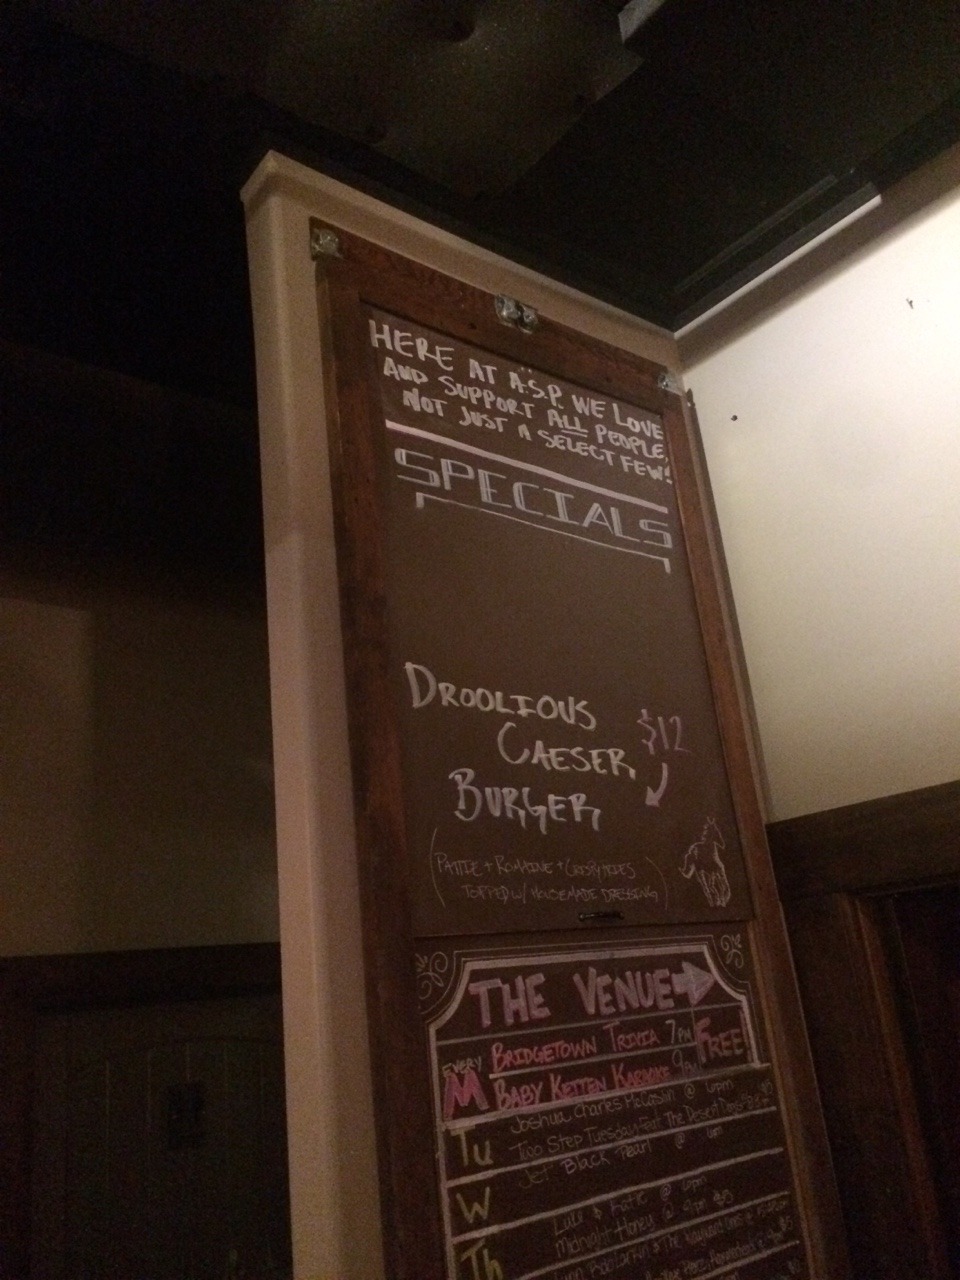 HERE AT A.S.P. WE LOVE
AND SUPPORT ALL PEOPLE,
NOT JUST A SELECT FEW!
SPECIALS
DROOLIOUS
CAESER
$12
BURGER
(PATTIE + ROMAINE + CRISPY FRIES
TOPPED W/ HOUSEMADE DRESSING)
THE VENUE
EVERY
M
BRIDGETOWN TRIVIA 7PM
FREE!
BABY KETTEN KARAOKE 9PM
Joshua Charles McCaslin @ 6pm
Tu
Two Step Tuesday Feat The Desert Days
Jet Black Pearl @
W
Luke & Kate @ 6pm
Midnight Honey @ 9pm $5
Th